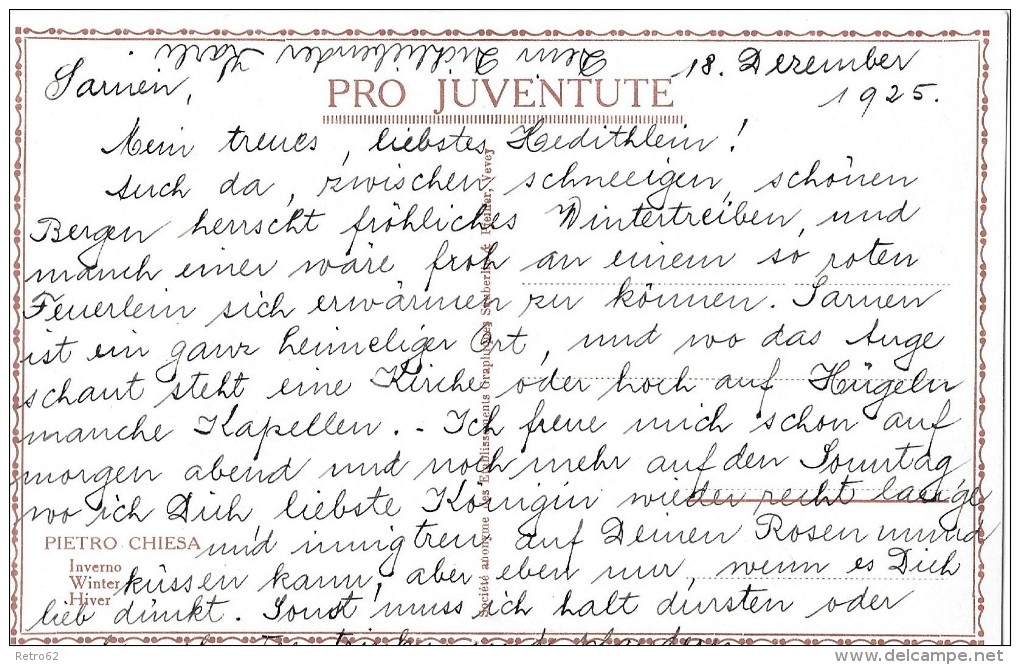 Dein Dichliebender Karli
18. Dezember
Sarnen,
1925.
PRO JUVENTUTE
Mein treues, liebstes Hedithlein!
Auch da, zwischen schneeigen, schönen
Bergen herrscht fröhliches Wintertreiben, und
manch einer wäre froh an einem so roten
Feuerlein sich erwärmen zu können. Sarnen
ist ein ganz heimeliger Ort, und wo das Auge
schaut steht eine Kirche oder hoch auf Hügeln
manche Kapellen. - Ich freue mich schon auf
morgen abend und noch mehr auf den Sonntag
wo ich Dich, liebste Königin wieder recht lange
und innig treu auf Deinen Rosenmund
küssen kann, aber eben nur, wenn es Dich
lieb dünkt. Sonst muss ich halt dürsten oder
PIETRO CHIESA
Inverno
Winter
Hiver
Société anonyme des Etablissements Graphiques Säuberlin & Pfeiffer, Vevey
Retro62
delcampe.net